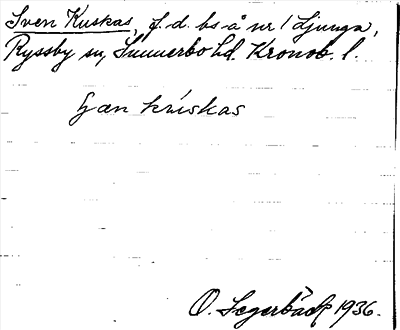 Sven Kuskas, f.d. bs å nr 1 Ljunga,
Ryssby sn, Sunnerbo hd. Kronob. l.
han kriskas
O. Segerbäck 1936.